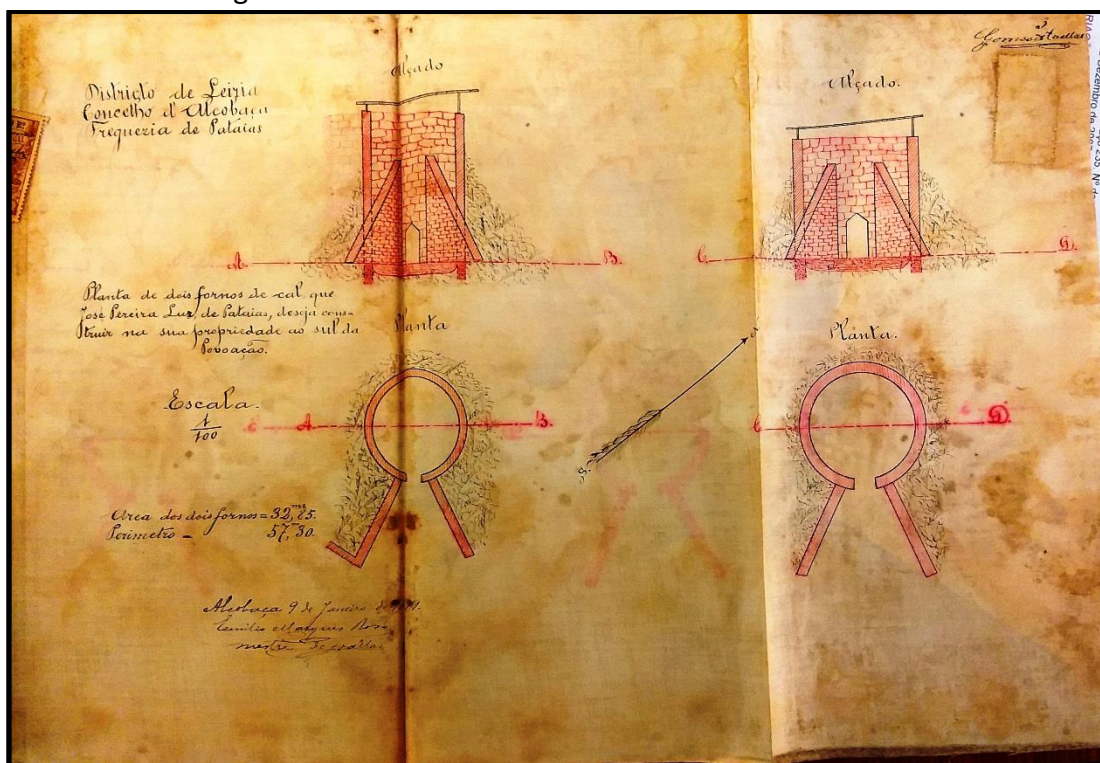 Districto de Leiria
Concelho d'Alcobaça
Freguezia de Pataias
Alçado
Alçado.
A
B
C
D.
Planta de dois fornos de cal, que
José Pereira Luz, de Pataias, deseja cons-
truir na sua propriedade ao sul da
Povoação.
Planta
Planta.
Escala.
1
100
A
B.
C
D
S.
Area dos dois fornos = 32,85.
Perimetro = 57,30.
Alcobaça 9 de Janeiro de
Emilio Marques Rosa
mestre de
Dezembro de
Nº